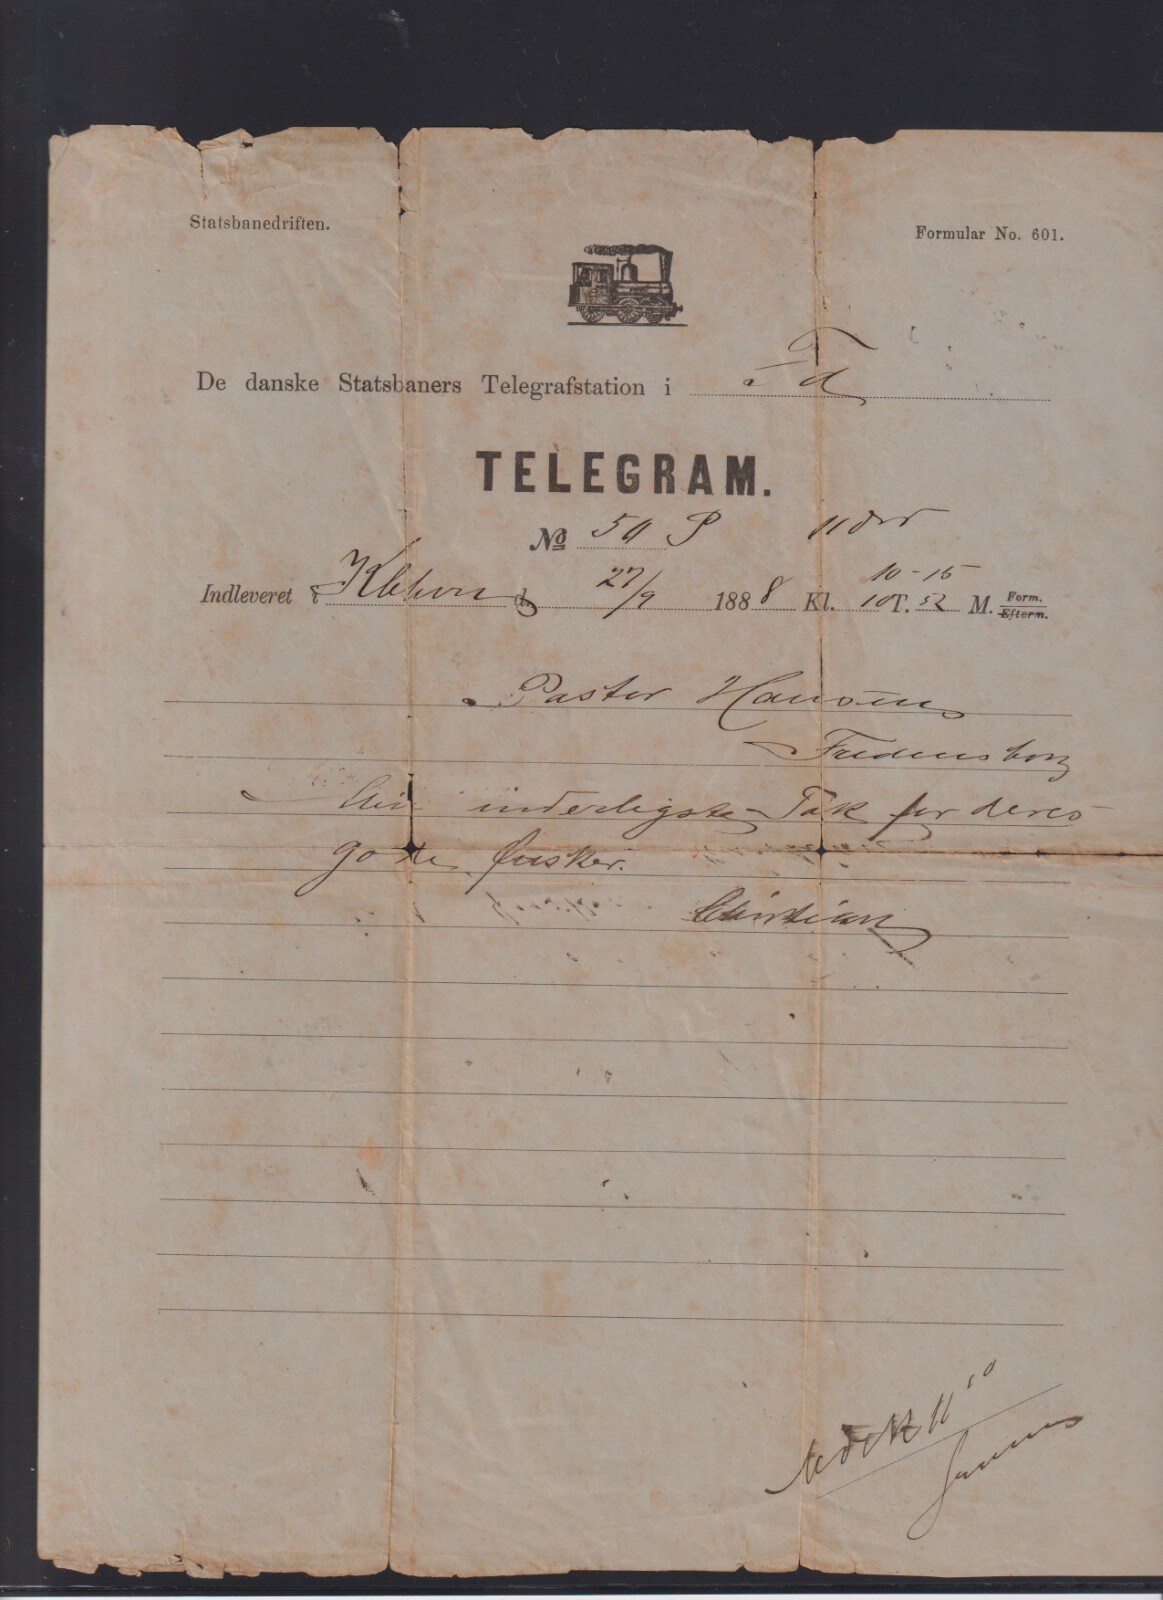 Statsbanedriften.
Formular No. 601.
De danske Statsbaners Telegrafstation i Fd
TELEGRAM.
No 50 P 11 Ord
10-15
Indleveret i Kbhvn d. 27/9 1888 Kl. 10 T. 52 M. Form. Efterm.
Pastor Hansen
Fredensborg
Min inderligste Tak for deres
gode Ønsker.
Christian